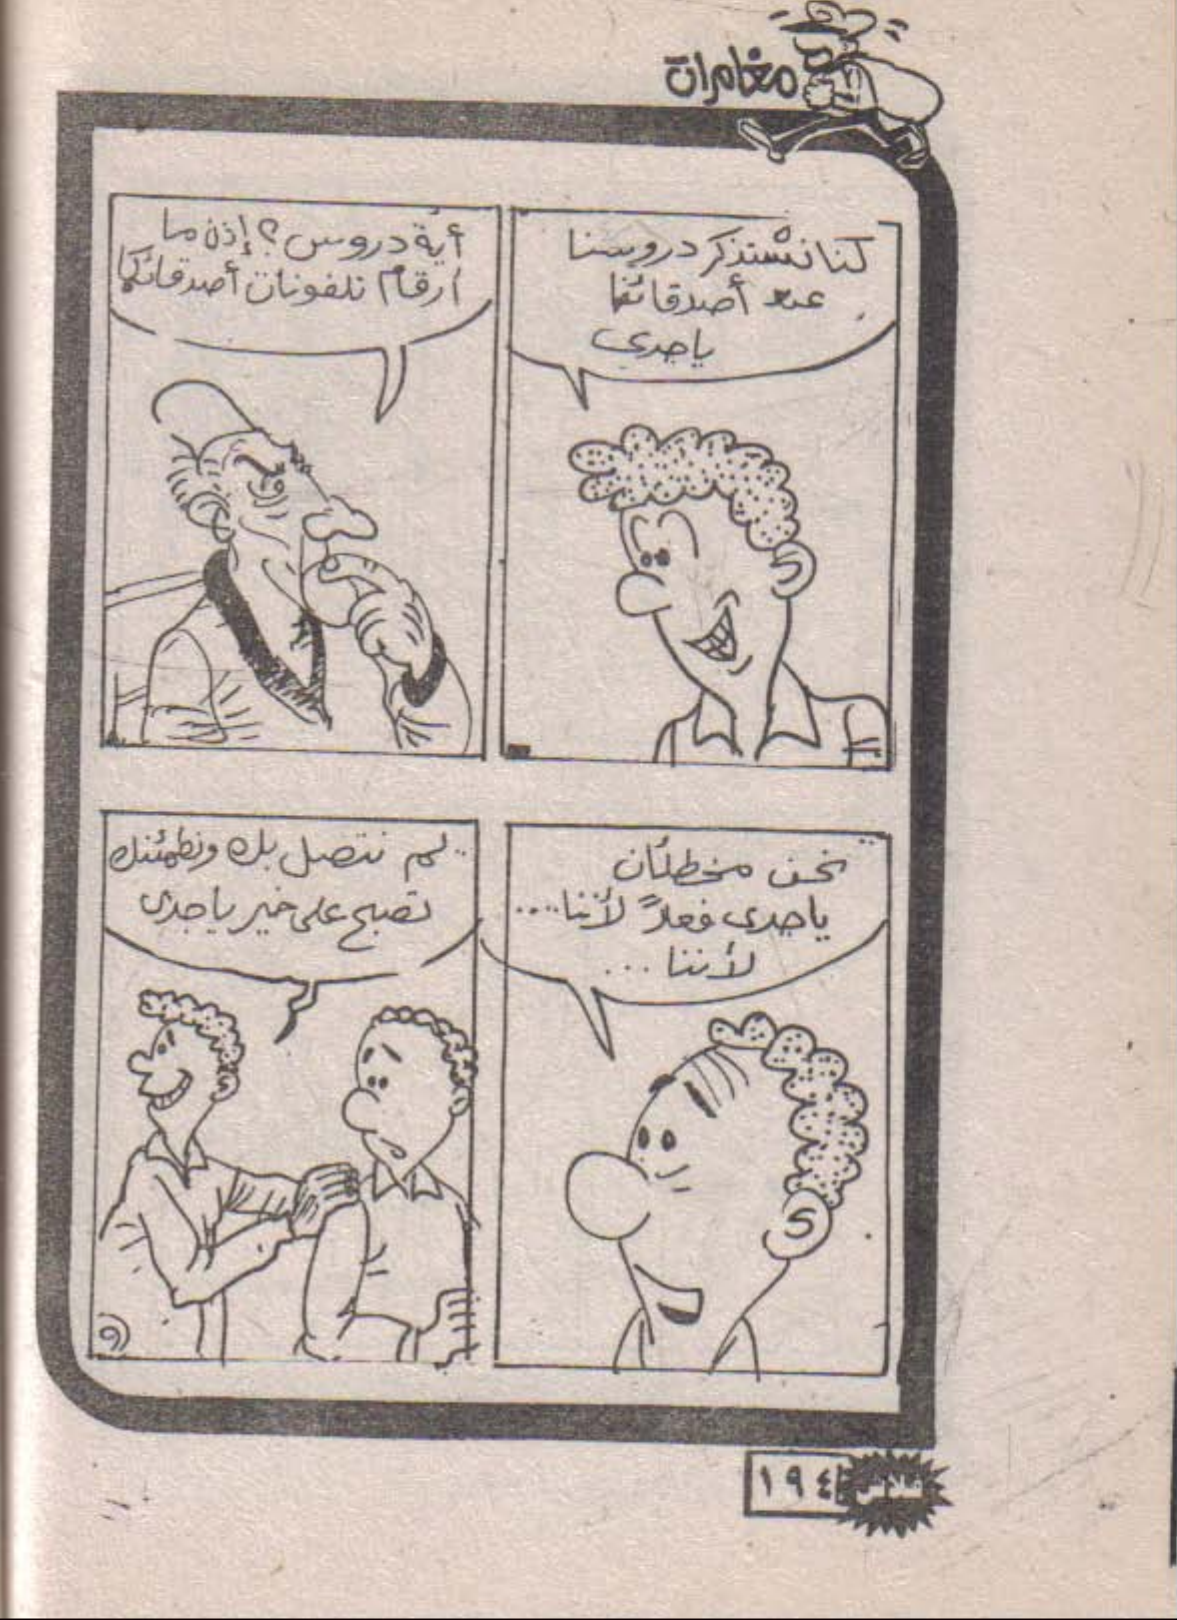 مغامرات
كنا نستذكر دروسنا
عند أصدقائنا
ياجدي
أية دروس؟ إذن ما
أرقام تلفونات أصدقائكما
نحن مخطئان
ياجدى فعلاً لأننا....
لأننا ...
..لم نتصل بك ونطمئنك
تصبح على خير ياجدى
١٩٤
فلاش